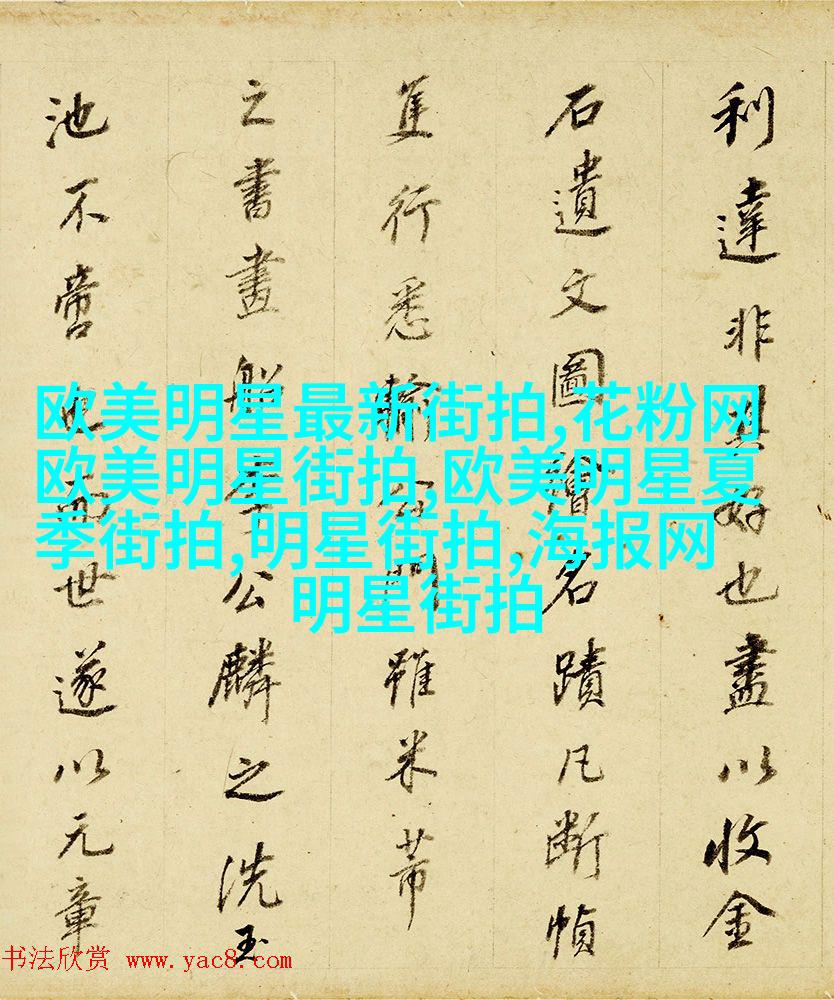 利達非其好也盡以收金
石遺文圖繪名蹟凡断幀
隻行悉輸門雖米芾
之書畫船李公麟之洗玉
池不啻也世遂以元章
欧美明星最新街拍,花粉网
欧美明星街拍,欧美明星夏
季街拍,明星街拍,海报网
明星街拍
书法欣赏 www.yac8.com